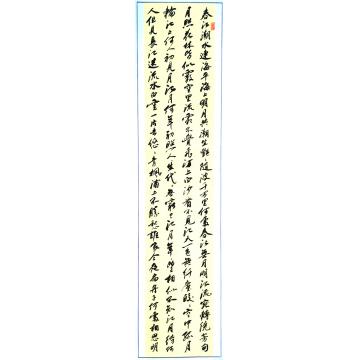 春江潮水連海平海上明月共潮生灧隨波千万里何處春江無月明江流宛轉繞芳甸
月照花林皆似霰空里流霜不覺飛汀上白沙看不見江天一色無纖塵皎〻空中孤月
輪江上何人初見月江月何年初照人生代〻無窮已江月年〻望相似不知江月待何
人但見長江送流水白雲一片去悠〻青楓浦上不勝愁誰家今夜扁舟子何處相思明